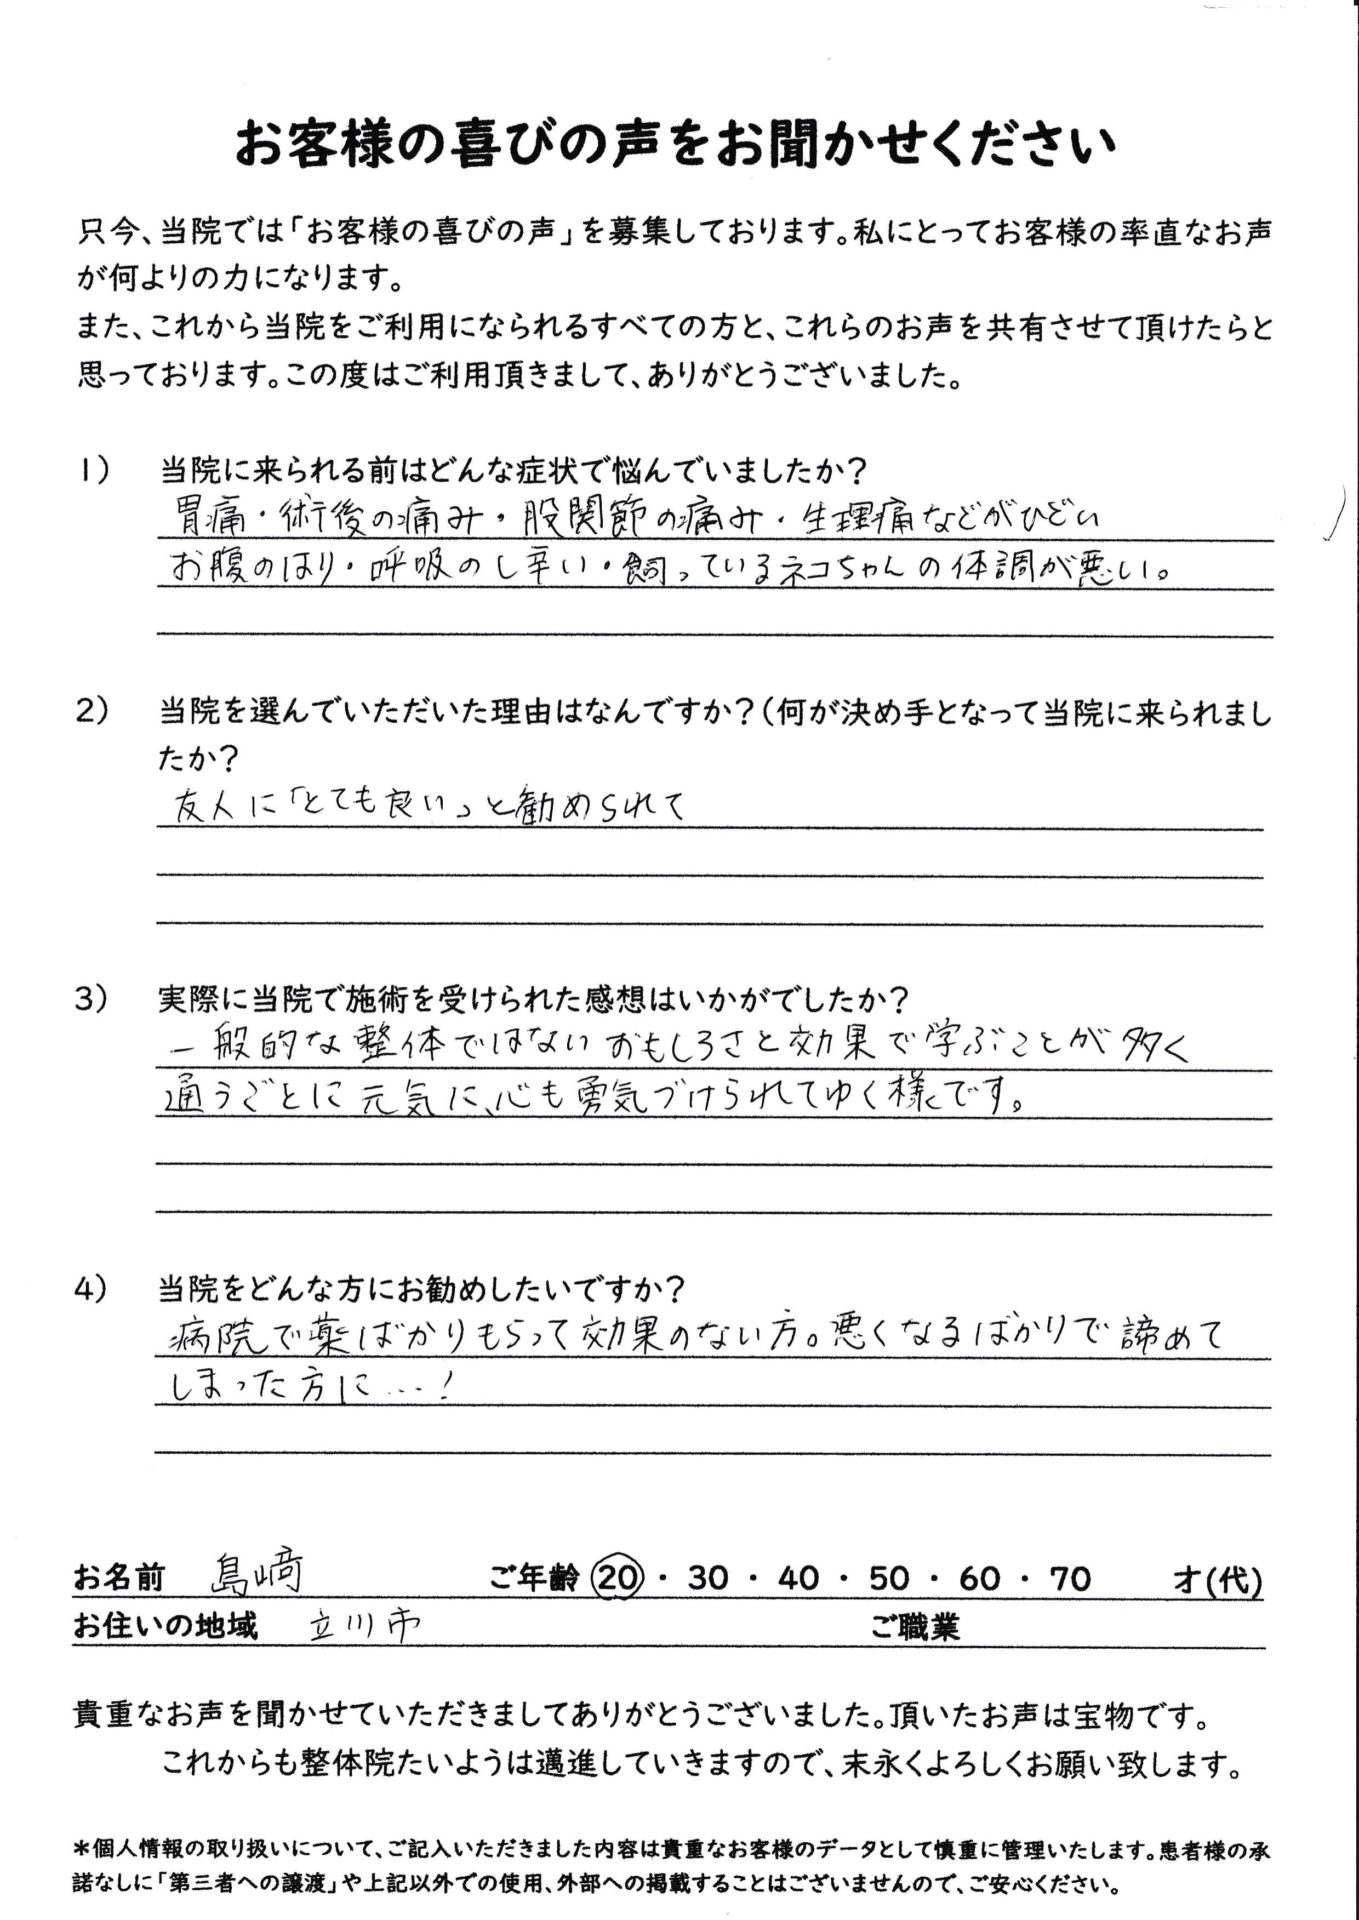 お客様の喜びの声をお聞かせください
只今、当院では「お客様の喜びの声」を募集しております。私にとってお客様の率直なお声
が何よりの力になります。
また、これから当院をご利用になられるすべての方と、これらのお声を共有させて頂けたらと
思っております。この度はご利用頂きまして、ありがとうございました。
1) 当院に来られる前はどんな症状で悩んでいましたか?
胃痛・術後の痛み・股関節の痛み・生理痛などがひどい
お腹のはり・呼吸のし辛い・飼っているネコちゃんの体調が悪い。
2) 当院を選んでいただいた理由はなんですか?(何が決め手となって当院に来られまし
たか?
友人に「とても良い」と勧められて
3) 実際に当院で施術を受けられた感想はいかがでしたか?
一般的な整体ではないおもしろさと効果で学ぶことが多く
通うごとに元気に、心も勇気づけられてゆく様です。
4) 当院をどんな方にお勧めしたいですか?
病院で薬ばかりもらって効果のない方。悪くなるばかりで諦めて
しまった方に…!
お名前 島﨑 ご年齢 20・30・40・50・60・70 才(代)
お住いの地域 立川市 ご職業
貴重なお声を聞かせていただきましてありがとうございました。頂いたお声は宝物です。
これからも整体院たいようは邁進していきますので、末永くよろしくお願い致します。
*個人情報の取り扱いについて、ご記入いただきました内容は貴重なお客様のデータとして慎重に管理いたします。患者様の承
諾なしに「第三者への譲渡」や上記以外での使用、外部への掲載することはございませんので、ご安心ください。